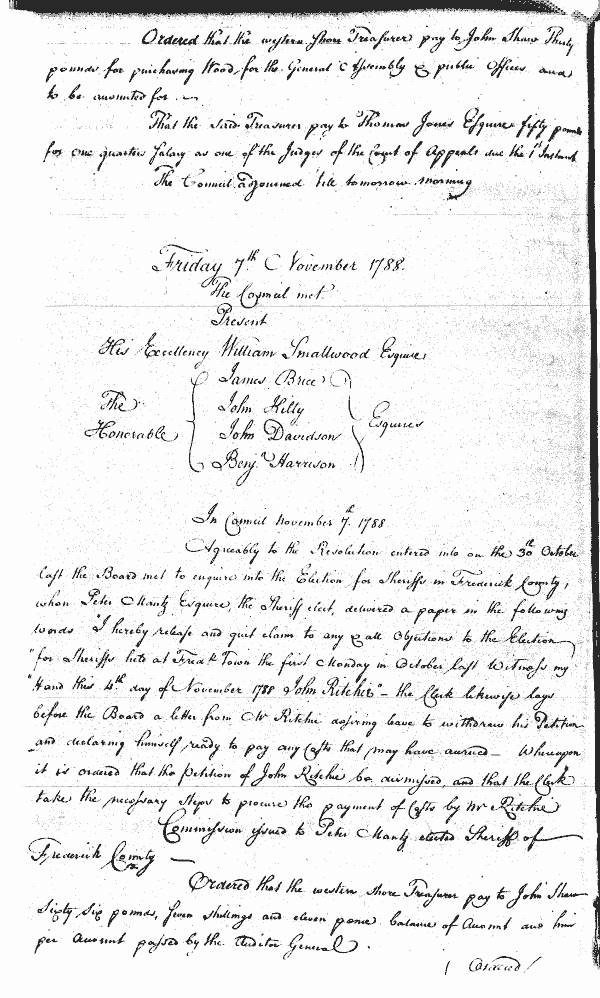 Ordered that the western shore Treasurer pay to John Shaw Thirty
pounds for purchasing Wood for the General Assembly & public Offices and
to be accounted for. ~
That the said Treasurer pay to Thomas Jones Esquire fifty pounds
for one quarters Salary as one of the Judges of the Court of Appeals due the 1st Instant
The Council adjourned till tomorrow morning
Friday 7th November 1788.
The Council met
Present
His Excellency William Smallwood Esquire
James Brice
The John Hilly
Honorable John Davidson Esquires
Benj. Harrison
In Council November 7th. 1788
Agreeably to the Resolution entered into on the 30th October
last the Board met to enquire into the Election for Sheriffs in Frederick County,
when Peter Mantz Esquire, the Sheriff elect, delivered a paper in the following
words "I hereby release and quit claim to any & all Objections to the Election
"for Sheriffs held at Fredk Town the first Monday in October last Witness my
"Hand this 4th day of November 1788 John Ritchie" – the Clerk likewise lays
before the Board a letter from Mr Ritchie desiring leave to withdraw his Petition
and declaring himself ready to pay any Costs that may have accrued – Whereupon
it is ordered that the Petition of John Ritchie be dismissed, and that the Clerk
take the necessary steps to procure the payment of Costs by Mr Ritchie
Commission issued to Peter Mantz elected Sheriff of
Frederick County —
Ordered that the western shore Treasurer pay to John Shaw
Sixty six pounds, seven shillings and eleven pence balance of Account due him
per Account passed by the Auditor General.